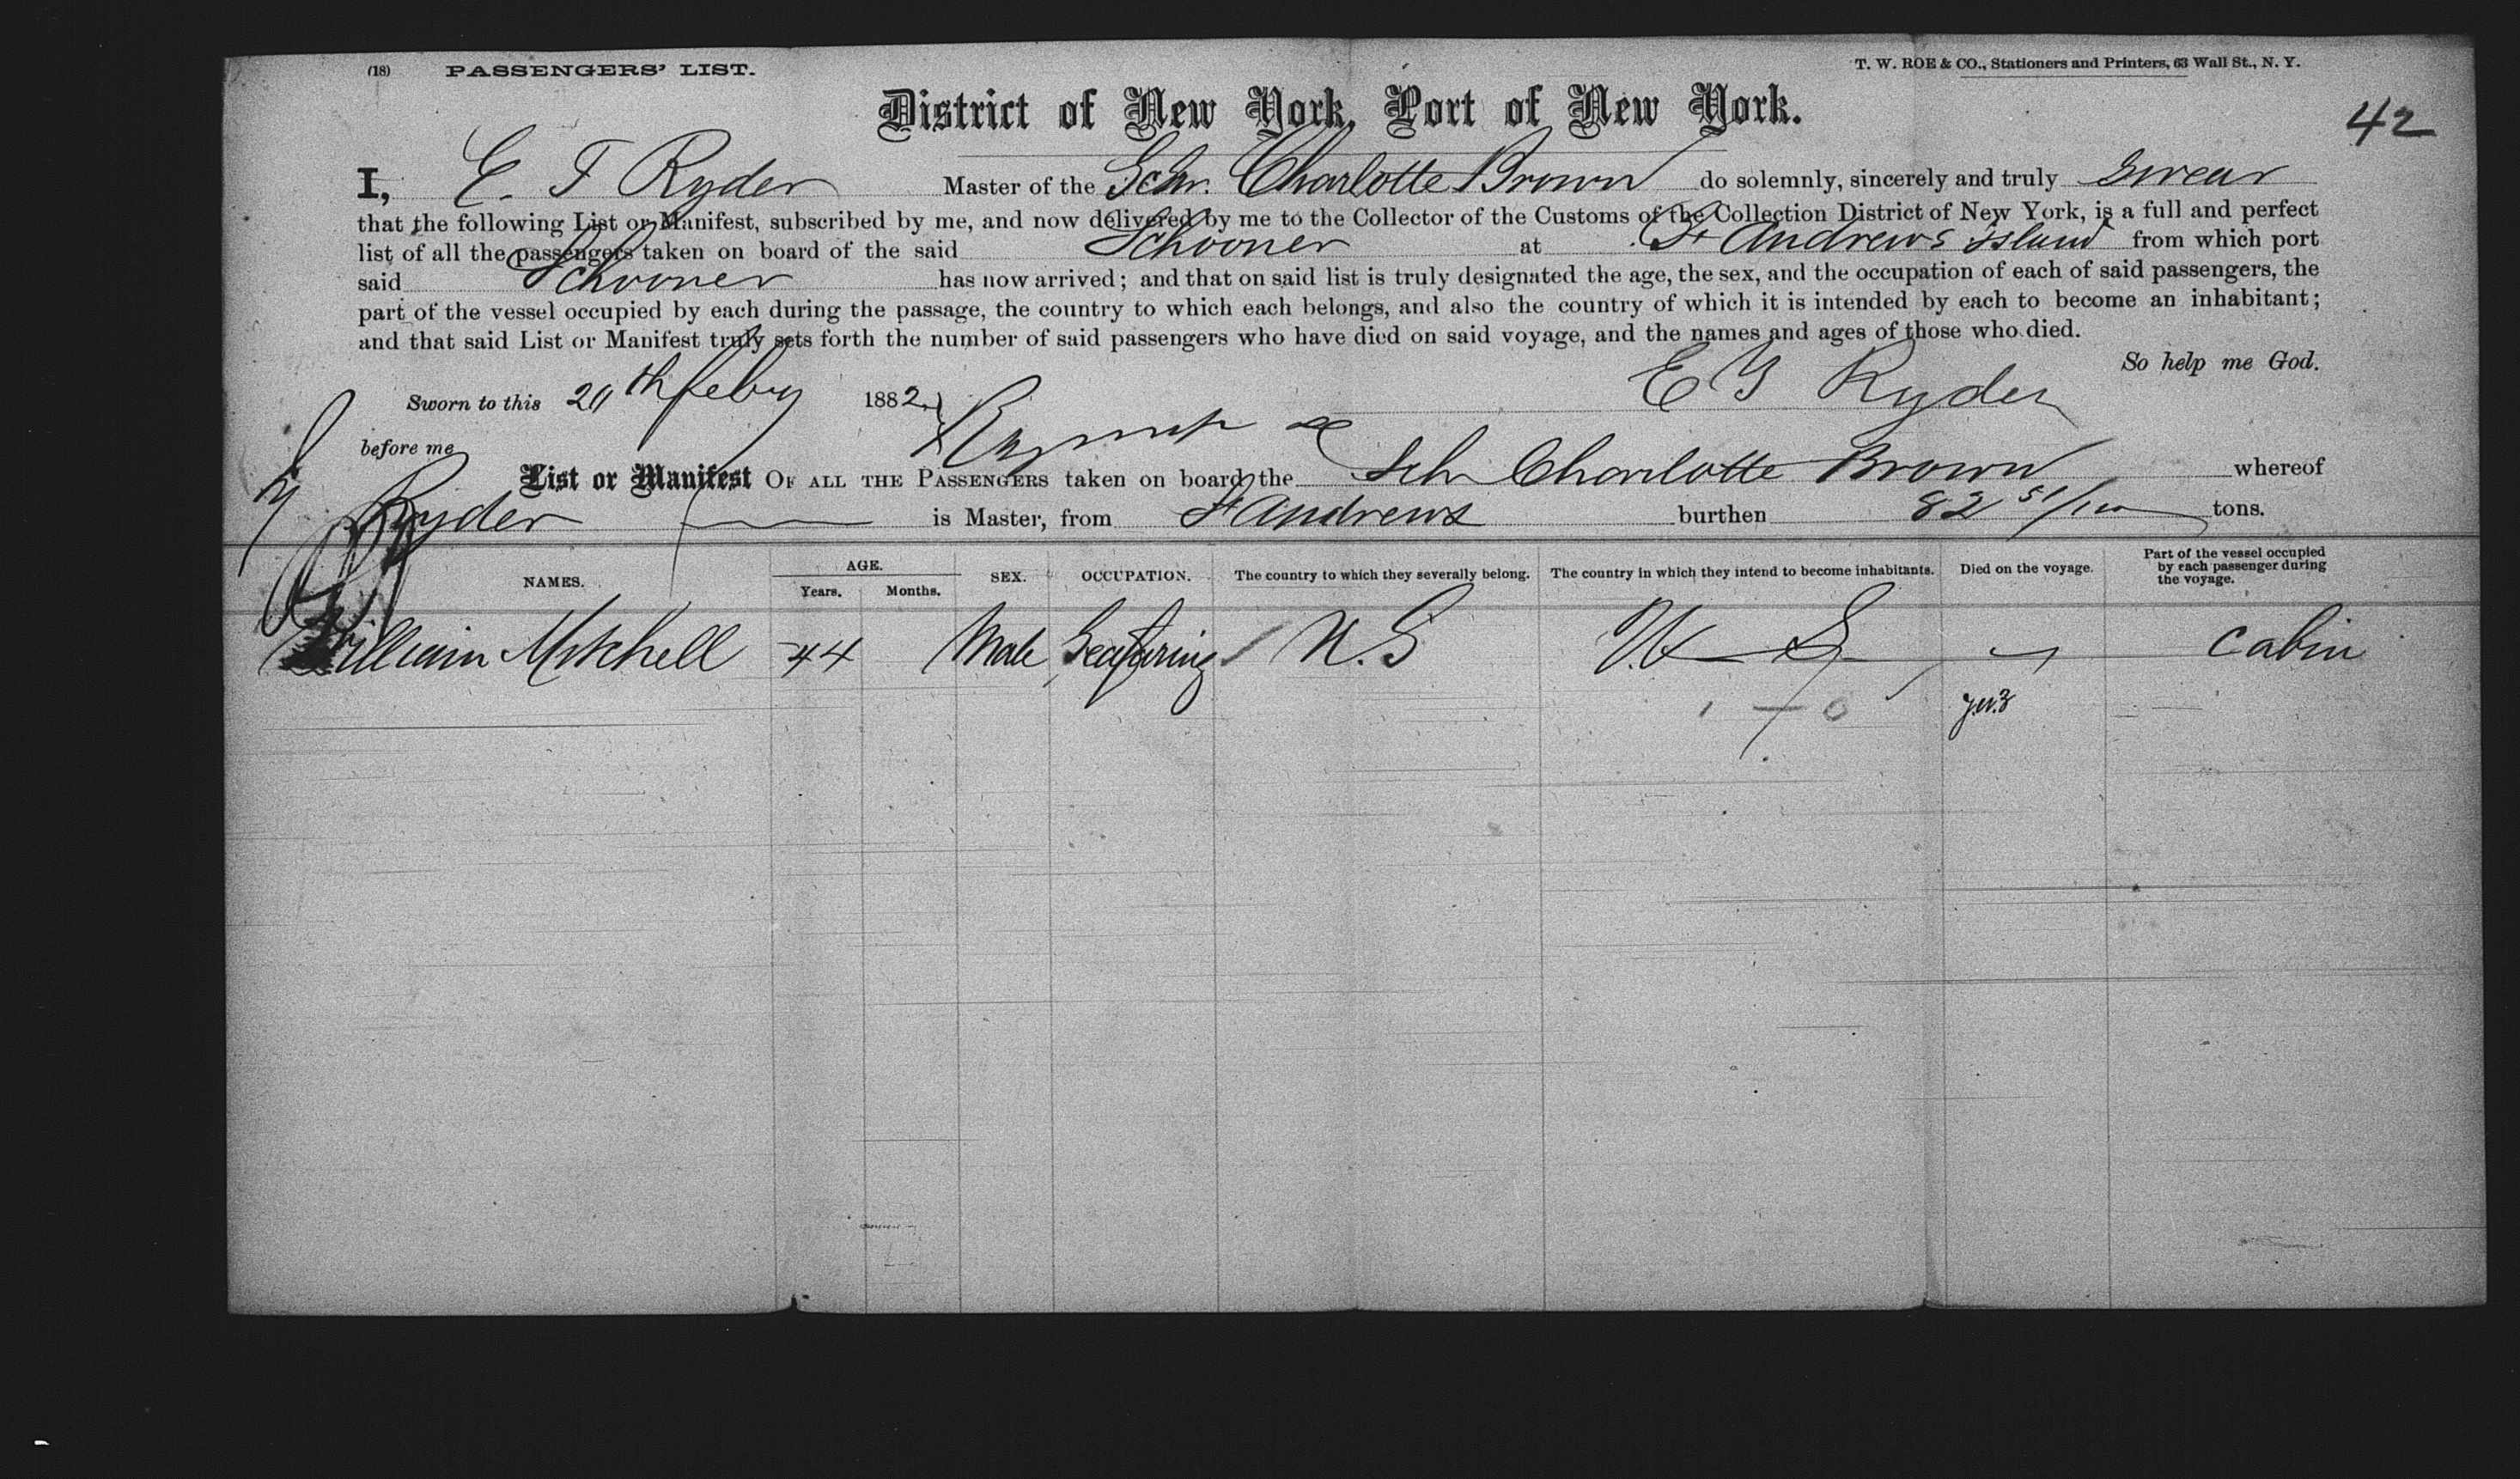 (18) PASSENGERS' LIST. T. W. ROE & CO., Stationers and Printers, 63 Wall St., N. Y.
District of New York, Port of New York.
42
I, E. T Ryder Master of the Schr. Charlotte Brown do solemnly, sincerely and truly swear
that the following List or Manifest, subscribed by me, and now delivered by me to the Collector of the Customs of the Collection District of New York, is a full and perfect
list of all the passengers taken on board of the said Schooner at St Andrews island from which port
said Schooner has now arrived; and that on said list is truly designated the age, the sex, and the occupation of each of said passengers, the
part of the vessel occupied by each during the passage, the country to which each belongs, and also the country of which it is intended by each to become an inhabitant;
and that said List or Manifest truly sets forth the number of said passengers who have died on said voyage, and the names and ages of those who died.
So help me God.
Sworn to this th feby 1882. E T Ryder
before me
List or Manifest OF ALL THE PASSENGERS taken on board the Sch Charlotte Brown whereof
Ryder is Master, from St Andrews burthen 82 51/100 tons.
NAMES. AGE. Years. Months. SEX. OCCUPATION. The country to which they severally belong. The country in which they intend to become inhabitants. Died on the voyage. Part of the vessel occupied by each passenger during the voyage.
William Mitchell 44 Male Seafaring U.S U S cabin
1 - 0